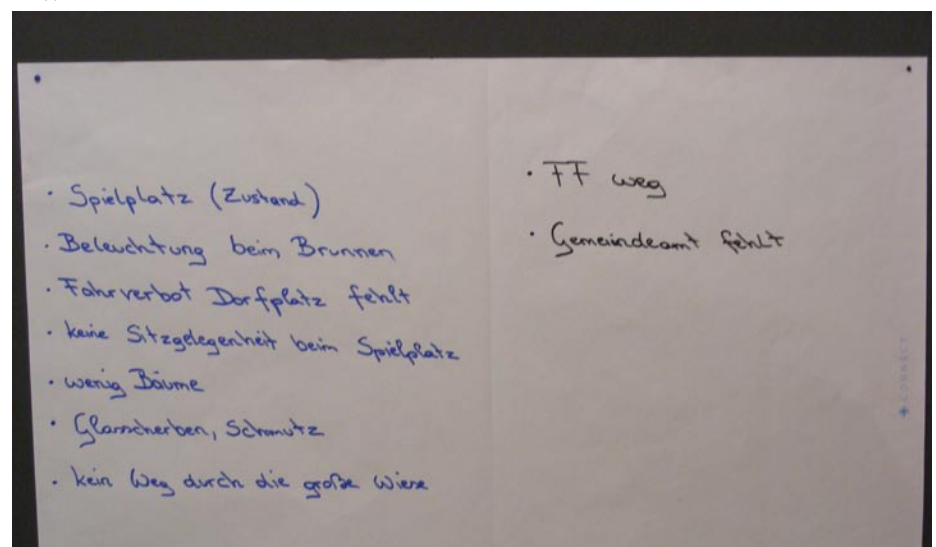 · Spielplatz (Zustand)
· Beleuchtung beim Brunnen
· Fahrverbot Dorfplatz fehlt
· keine Sitzgelegenheit beim Spielplatz
· wenig Bäume
· Glasscherben, Schmutz
· kein Weg durch die große Wiese
· FF weg
· Gemeindeamt fehlt
CONNECT